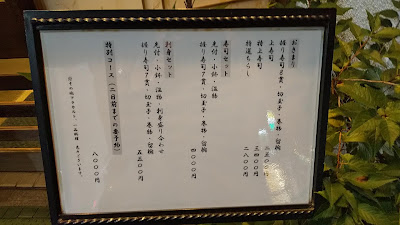 おきまり
握り寿司8貫・切玉子・巻物・留椀
上寿司 二五〇〇円
特上寿司 三四〇〇円
特選ちらし 二八〇〇円
寿司セット
先付・小鉢・温物
握り寿司7貫・切玉子・巻物・留椀
四〇〇〇円
刺身セット
先付・小鉢・温物・刺身盛り合わせ
握り寿司7貫・切玉子・巻物・留椀
五五〇〇円
特別コース(二日前までの要予約)
八〇〇〇円